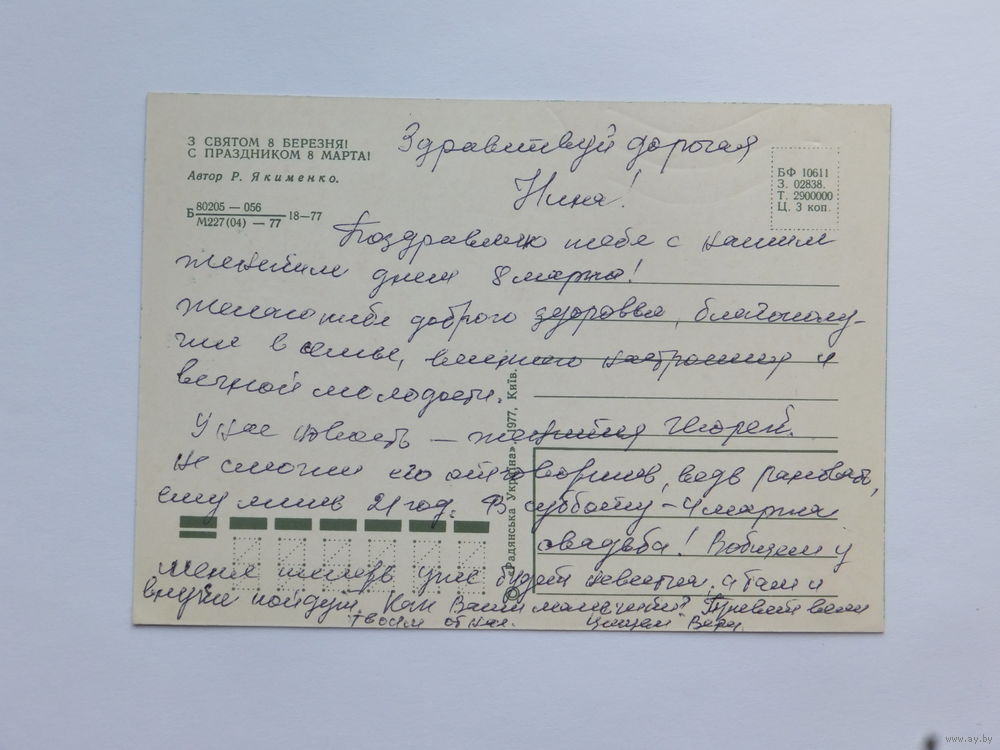 З СВЯТОМ 8 БЕРЕЗНЯ!
С ПРАЗДНИКОМ 8 МАРТА!
Автор Р. Якименко.
Б 80205 — 056
М227(04) — 77
18—77
БФ 10611
З. 02838.
Т. 2900000
Ц. 3 коп.
Здравствуй дорогая
Нина!
Поздравляю тебя с нашим
женским днем 8 марта!
Желаю тебе доброго здоровья, благополу-
чия в семье, весеннего настроения и
вечной молодости.
У нас новость – женится Георгий.
Не смогли его отговорить, ведь рановато,
ему лишь 21 год. В субботу – 4 марта
свадьба! В общем у
меня теперь уже будет невестка, а там и
внуки пойдут. Как Ваши мальчики? Привет всем
твоим от нас. Целуем Вера.
© «Радянська Україна», 1977, Київ.
www.ay.by